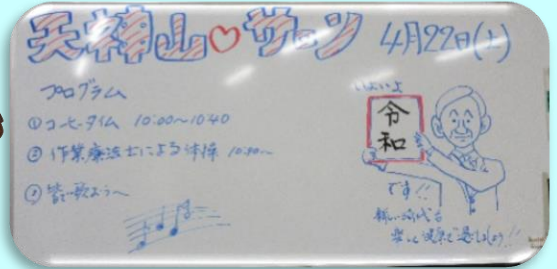 天神山♡サロン 4月22日(土)
プログラム
①コーヒータイム 10:00~10:40
② 作業療法士による体操 10:40~
③ 皆で歌おう~
いよいよ
令
和
です!!
新しい時代も
楽しく健康で過しましょう!!